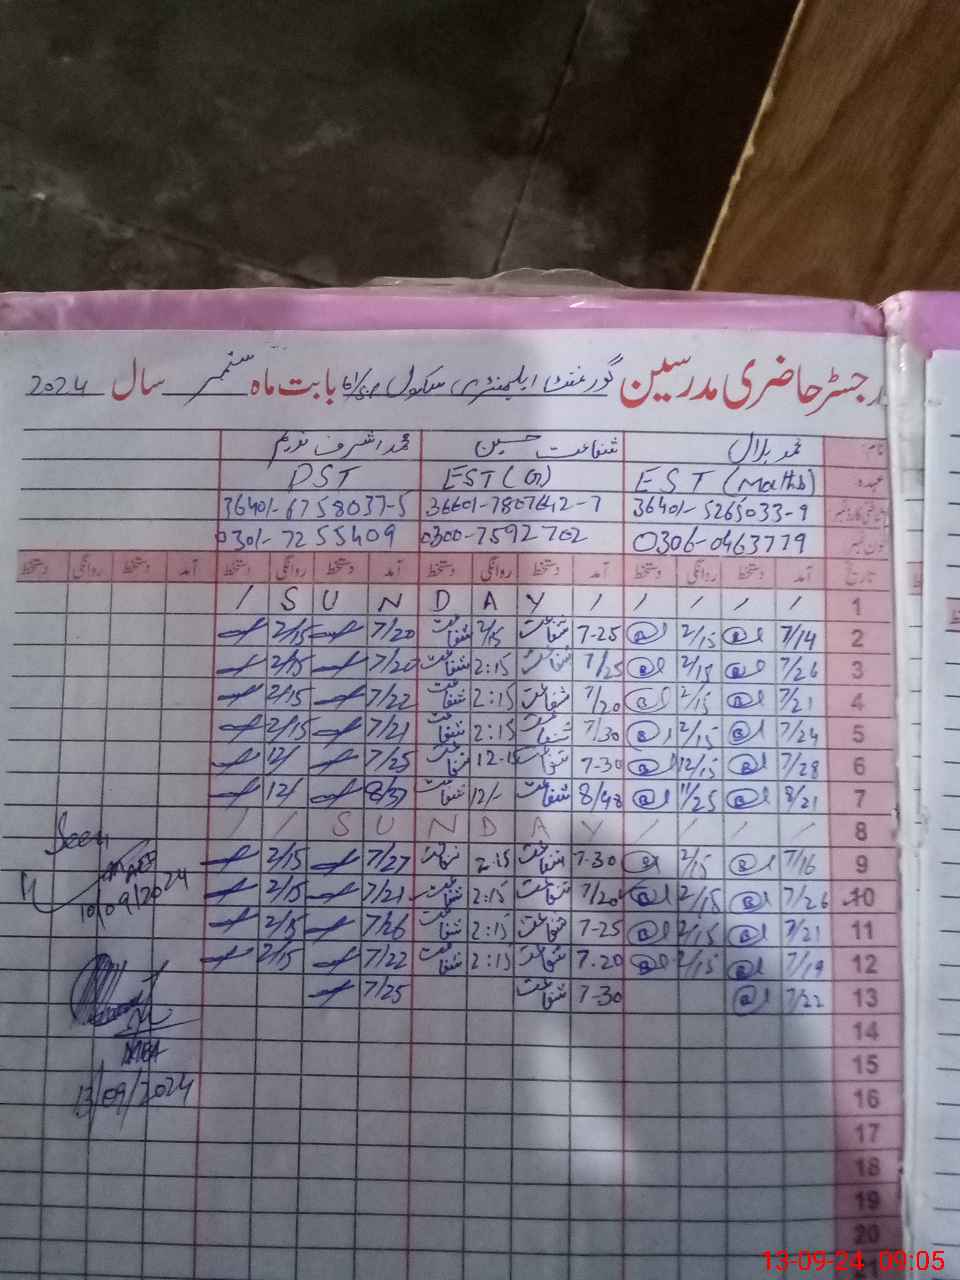 رجسٹر حاضری مدرسین گورنمنٹ ایلیمنٹری سکول بابت ماہ ستمبر سال 2024
نام: محمد بلال شفاعت حسین محمد اشرف ندیم
عہدہ EST (Maths) EST (G) PST
شناختی کارڈ نمبر 36401-5265033-9 36601-7807642-7 36401-6758037-5
فون نمبر 0306-0463779 0300-7592702 0301-7255409
تاریخ آمد دستخط روانگی دستخط آمد دستخط روانگی دستخط آمد دستخط روانگی دستخط آمد دستخط روانگی دستخط
1 / / / / Y A D N U S /
2 7/14 2/15 7-25 شفاعت 2/15 شفاعت 7/20 2/15
3 7/26 2/15 7/25 شفاعت 2:15 شفاعت 7/20 2/15
4 7/21 2/15 7/20 شفاعت 2:15 شفاعت 7/22 2/15
5 7/24 2/15 7/30 شفاعت 2:15 شفاعت 7/21 2/15
6 7/28 12/15 7-30 شفاعت 12-15 شفاعت 7/25 12/
7 8/21 11/25 8/48 شفاعت 12/- شفاعت 12/
8 / / / / Y A D N U S / /
9 7/16 2/15 7-30 شفاعت 2:15 شفاعت 7/27 2/15
10 7/26 2/15 7/20 شفاعت 2:15 شفاعت 7/21 2/15
11 7/21 2/15 7-25 شفاعت 2:15 شفاعت 7/26 2/15
12 7/19 2/15 7.20 شفاعت 2:15 شفاعت 7/22 2/15
13 7/22 7-30 شفاعت 7/25
14
15
16
17
18
19
20
Seen
10/09/2024
13/09/2024
13-09-24 09:05